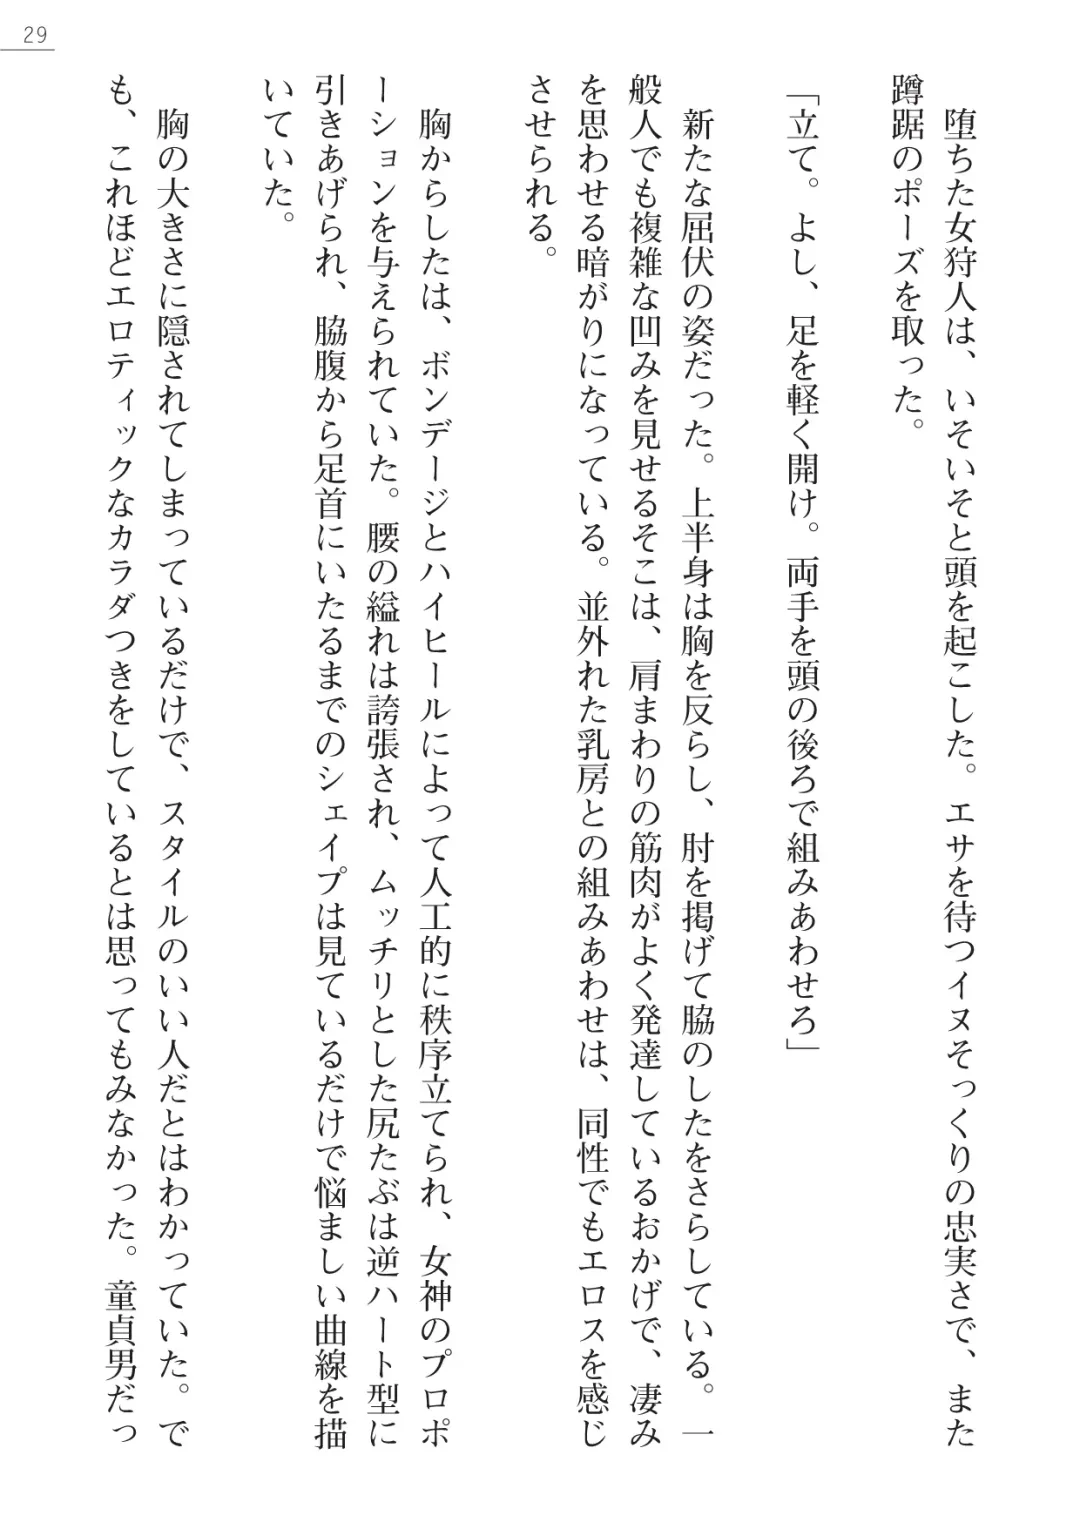 29
堕ちた女狩人は、いそいそと頭を起こした。エサを待つイヌそっくりの忠実さで、また
蹲踞のポーズを取った。
「立て。よし、足を軽く開け。両手を頭の後ろで組みあわせろ」
新たな屈伏の姿だった。上半身は胸を反らし、肘を掲げて脇のしたをさらしている。一
般人でも複雑な凹みを見せるそこは、肩まわりの筋肉がよく発達しているおかげで、凄み
を思わせる暗がりになっている。並外れた乳房との組みあわせは、同性でもエロスを感じ
させられる。
胸からしたは、ボンデージとハイヒールによって人工的に秩序立てられ、女神のプロポ
ーションを与えられていた。腰の縊れは誇張され、ムッチリとした尻たぶは逆ハート型に
引きあげられ、脇腹から足首にいたるまでのシェイプは見ているだけで悩ましい曲線を描
いていた。
胸の大きさに隠されてしまっているだけで、スタイルのいい人だとはわかっていた。で
も、これほどエロティックなカラダつきをしているとは思ってもみなかった。童貞男だっ